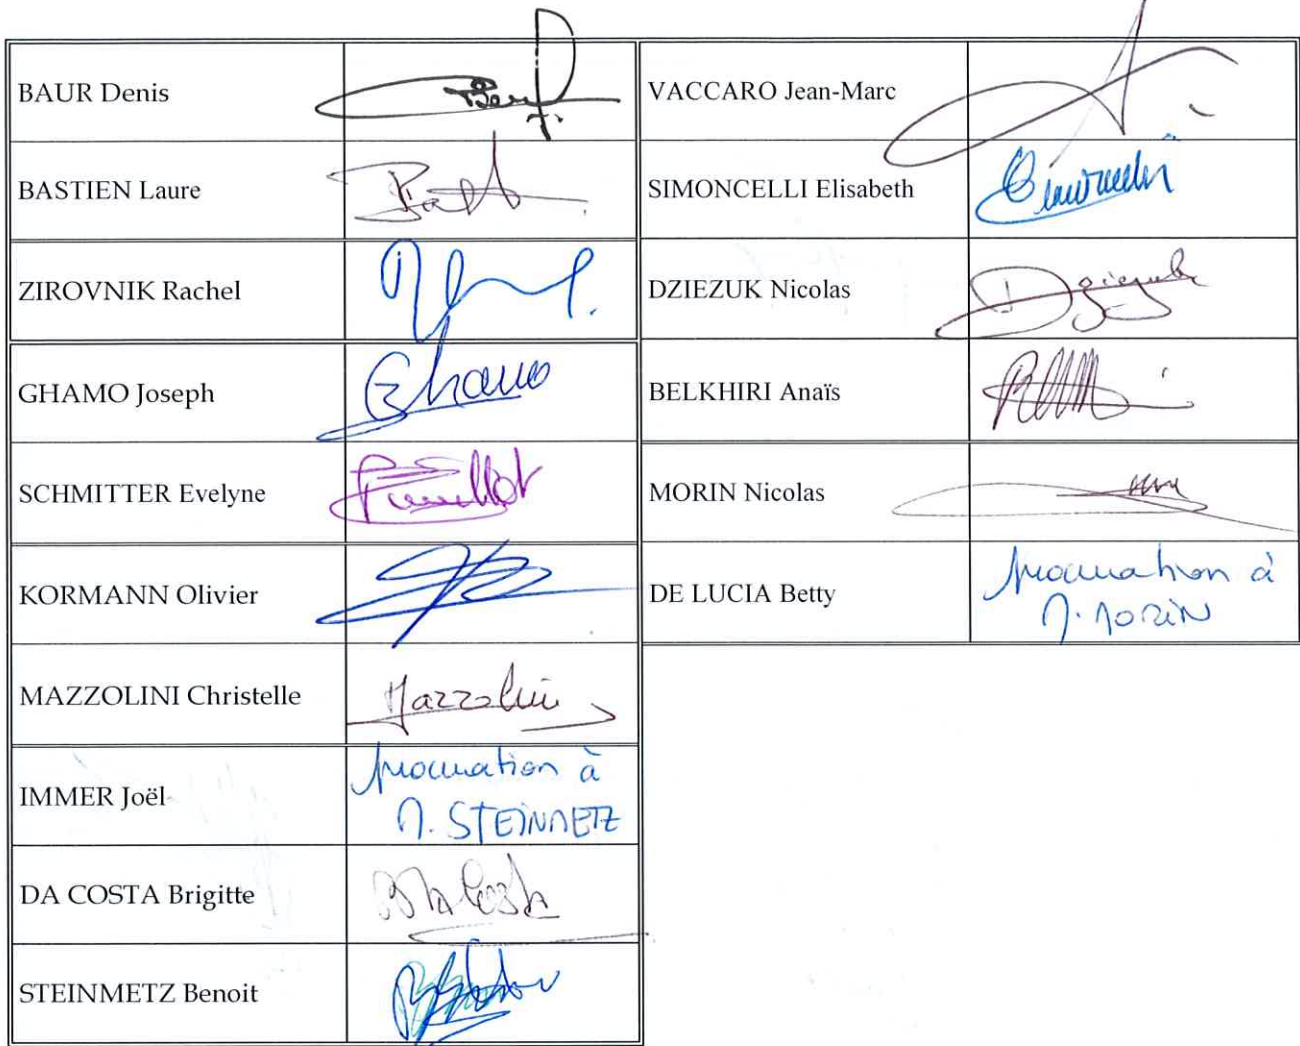 BAUR Denis
BASTIEN Laure
ZIROVNIK Rachel
GHAMO Joseph
Ghamo
SCHMITTER Evelyne
KORMANN Olivier
MAZZOLINI Christelle
Mazzolini
IMMER Joël
procuration à
M. STEINMETZ
DA COSTA Brigitte
STEINMETZ Benoit
VACCARO Jean-Marc
SIMONCELLI Elisabeth
DZIEZUK Nicolas
BELKHIRI Anaïs
MORIN Nicolas
DE LUCIA Betty
procuration à
M. MORIN